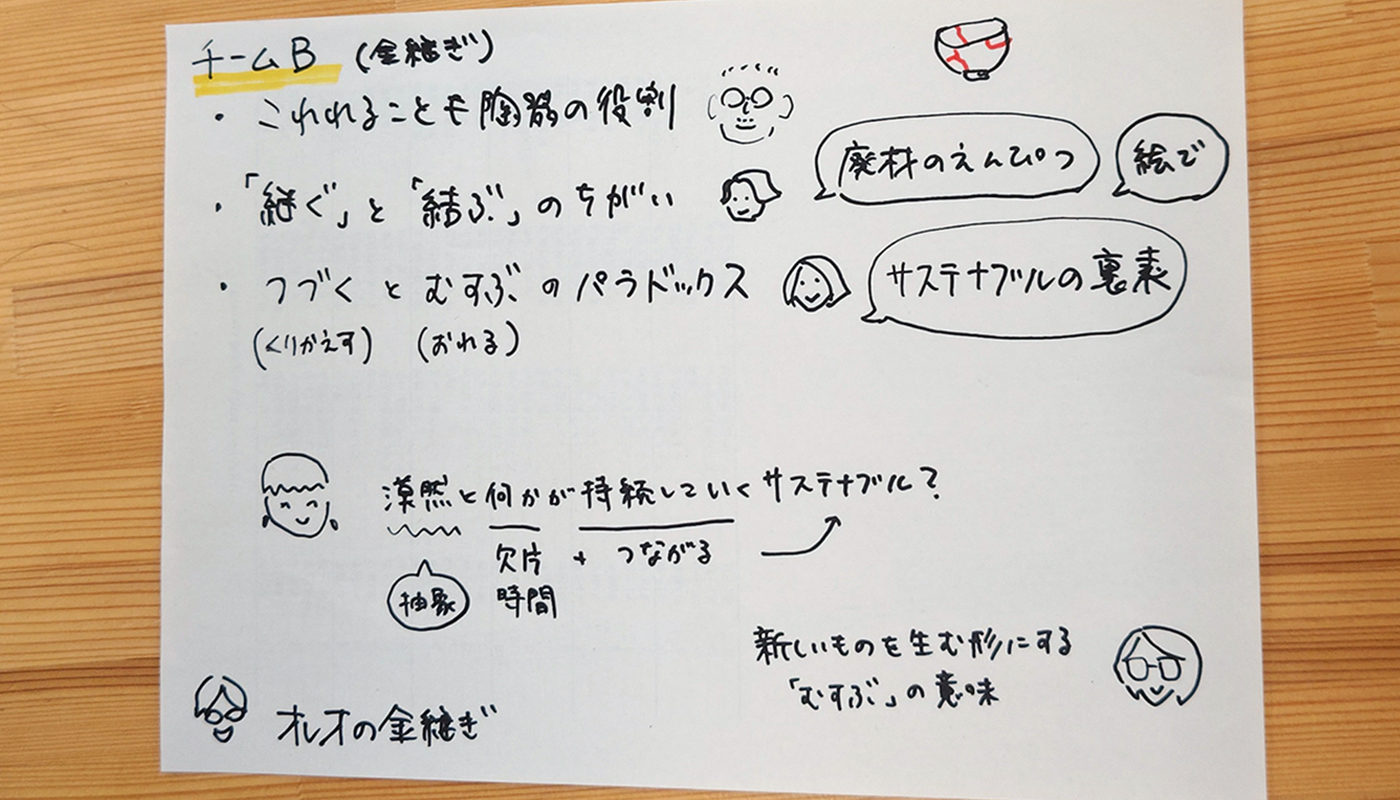 チームB (金継ぎ)
・こわれることも陶器の役割
廃材のえんぴつ
絵で
・「継ぐ」と「結ぶ」のちがい
・つづくとむすぶのパラドックス
(くりかえす) (おれる)
サステナブルの裏表
漠然と何かが持続していくサステナブル?
欠片 + つながる
抽象
時間
新しいものを生む形にする
「むすぶ」の意味
オレオの金継ぎ